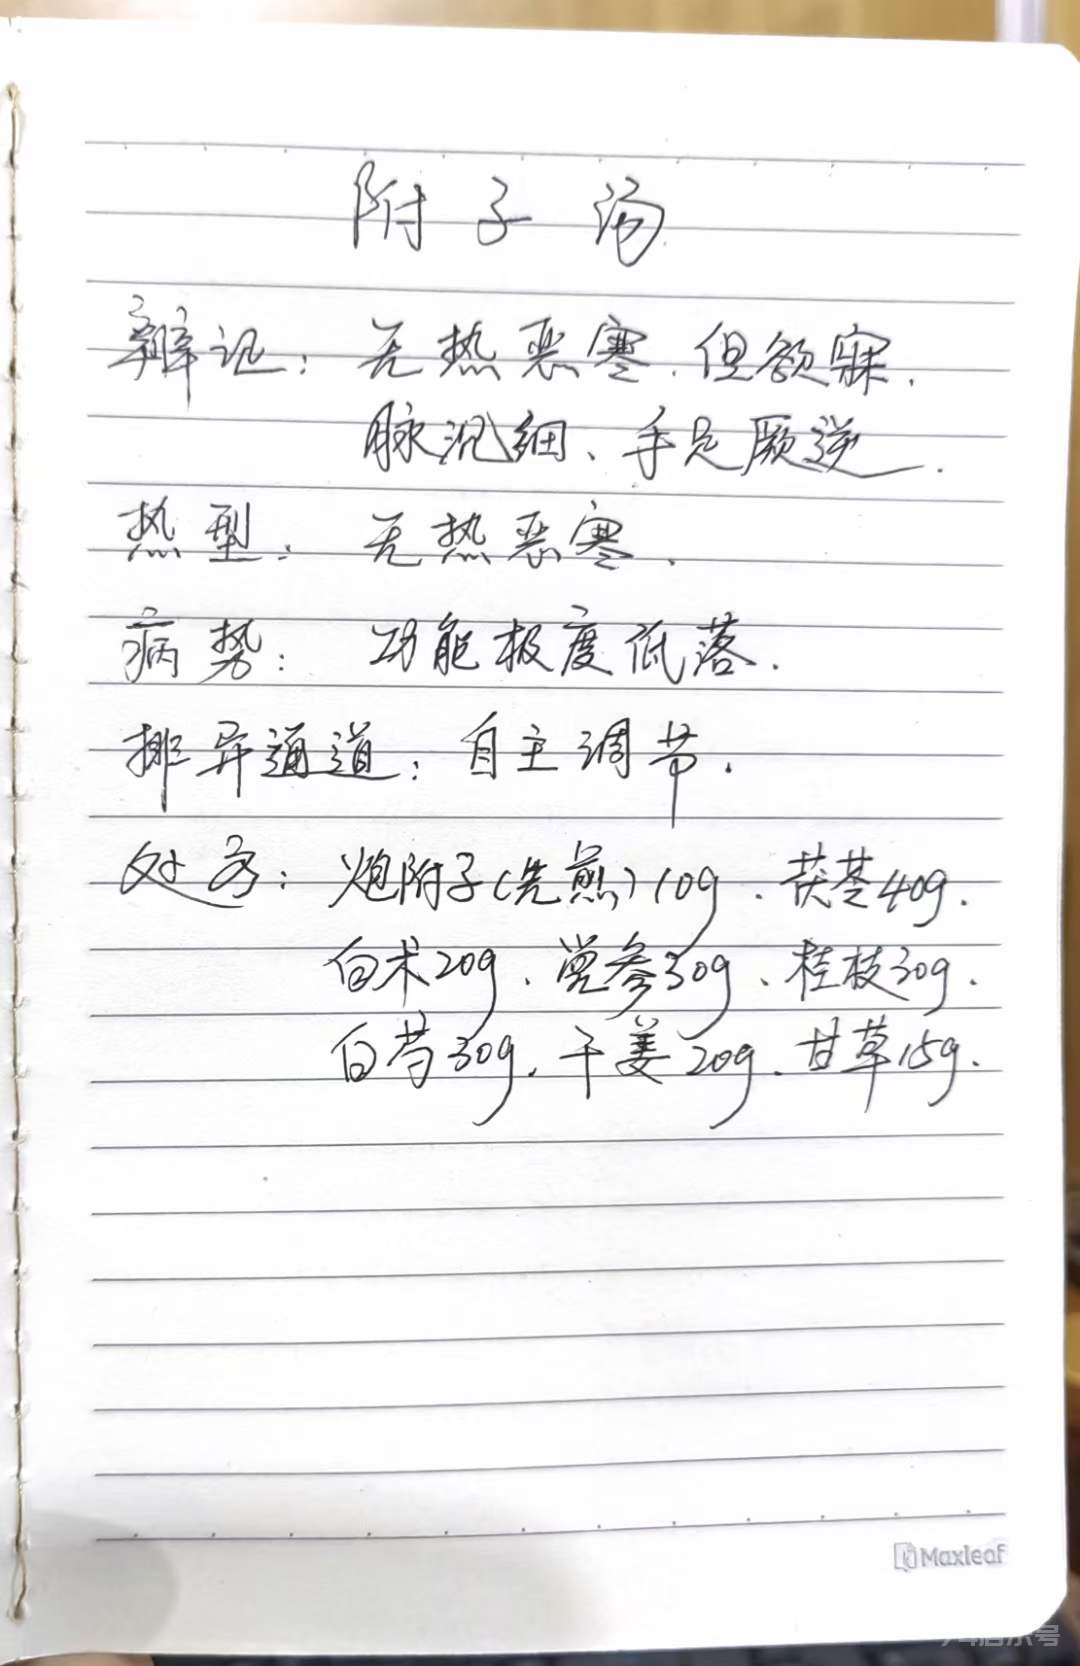 附子汤
辩证：无热恶寒、但欲寐、
脉沉细、手足厥逆.
热型：无热恶寒.
病势：功能极度低落.
排异通道：自主调节.
处方：炮附子(先煎)10g、茯苓40g.
白术20g、党参30g、桂枝30g.
白芍30g、干姜20g、甘草15g.
Maxleaf